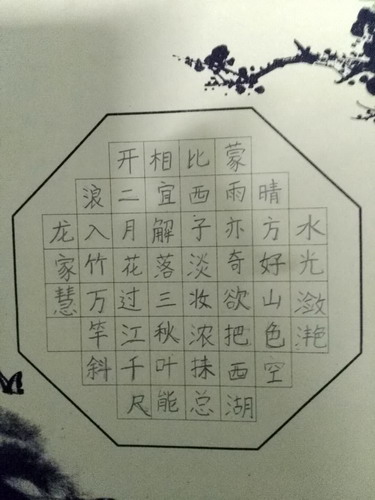 水光潋滟
晴方好山色空
蒙雨亦奇欲把西湖
比西子淡妆浓抹总
相宜解落三秋叶能
开二月花过江千尺
浪入竹万竿斜
龙家慧